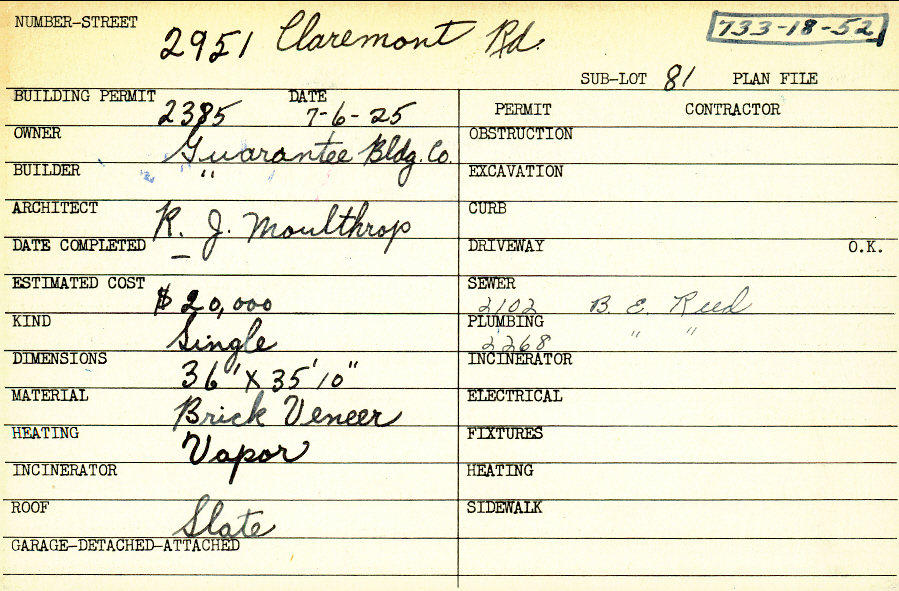 NUMBER-STREET 2951 Claremont Rd. 733-18-52
SUB-LOT 81 PLAN FILE
BUILDING PERMIT 2385 DATE 7-6-25
PERMIT CONTRACTOR
OWNER Guarantee Bldg. Co.
OBSTRUCTION
BUILDER " "
EXCAVATION
ARCHITECT R. J. Moulthrop
CURB
DATE COMPLETED –
DRIVEWAY O.K.
ESTIMATED COST $20,000
SEWER 2102 B. E. Reed
KIND Single
PLUMBING 2268 " "
DIMENSIONS 36' X 35'10"
INCINERATOR
MATERIAL Brick Veneer
ELECTRICAL
HEATING Vapor
FIXTURES
INCINERATOR
HEATING
ROOF Slate
SIDEWALK
GARAGE-DETACHED-ATTACHED